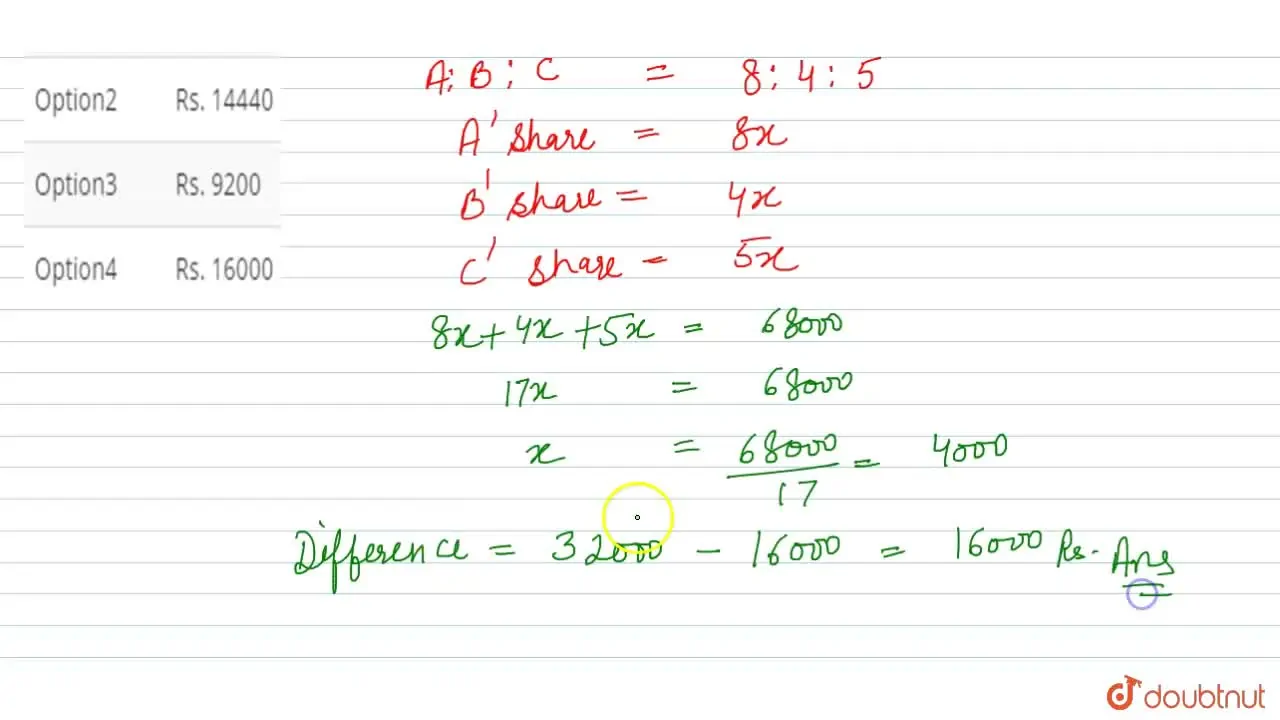 Option2 Rs. 14440
Option3 Rs. 9200
Option4 Rs. 16000
A : B : C = 8 : 4 : 5
A' share = 8x
B' share = 4x
C' share = 5x
8x + 4x + 5x = 68000
17x = 68000
x = 68000/17 = 4000
Difference = 32000 - 16000 = 16000 Rs. Ans
doubtnut